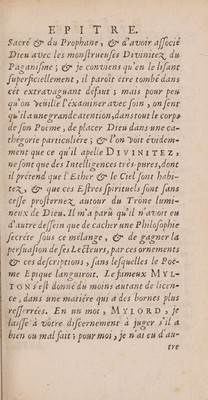 EPITRE.
Sacré & du Prophane, & d'avoir associé
Dieu avec les monstrueuses Divinitez du
Paganisme; & je conviens qu'en le lisant
superficiellement, il paroît être tombé dans
cet extravaguant défaut; mais pour peu
qu'on veuille l'éxaminer avec soin, on sent
qu'il a une grande atention, dans tout le corps
de son Poëme, de placer Dieu dans une ca-
thégorie particuliére; & l'on voit évidem-
ment que ce qu'il apelle DIVINITEZ,
ne sont que des Intelligences très-pures, dont
il prétend que l'Ether & le Ciel sont habi-
tez, & que ces Estres spirituels sont sans
cesse prosternez autour du Trône lumi-
neux de Dieu. Il m'a paru qu'il n'avoit eu
d'autre dessein que de cacher une Philosophie
secréte sous ce mélange, & de gagner la
persuasion de ses Lecteurs, par ces ornements
& ces descriptions, sans lesquelles le Poë-
me Epique languiroit. Le fameux MYL-
TON s'est donné du moins autant de licen-
ce, dans une matiére qui a des bornes plus
resserrées. En un mot, MYLORD, je
laisse à votre discernement à juger s'il a
bien ou mal fait; pour moi, je n'ai eu d'au-
tre